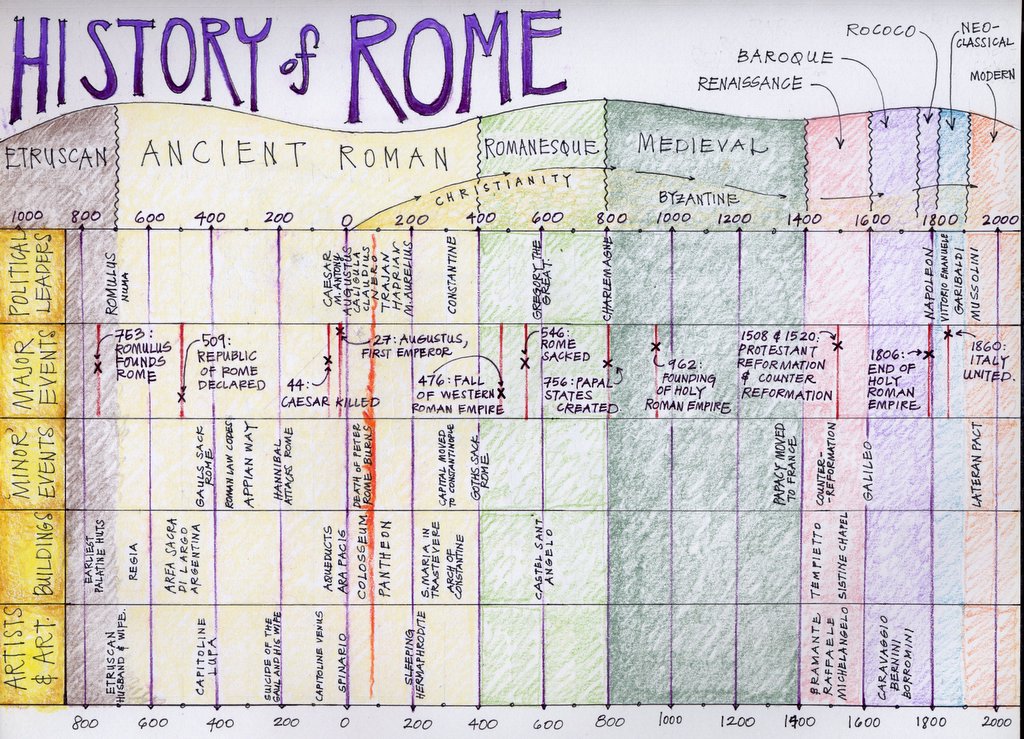 HISTORY of ROME
ROCOCO
NEO-
CLASSICAL
BAROQUE
RENAISSANCE
MODERN
ETRUSCAN
ANCIENT ROMAN
ROMANESQUE
MEDIEVAL
CHRISTIANITY
BYZANTINE
1000 800 600 400 200 0 200 400 600 800 1000 1200 1400 1600 1800 2000
POLITICAL
LEADERS
ROMULUS
NUMA
CAESAR
M. ANTONY
AUGUSTUS
CALIGULA
CLAUDIUS
NERO
TRAJAN
HADRIAN
M. AURELIUS
CONSTANTINE
GREGORY THE
GREAT.
CHARLEMAGNE
NAPOLEON
VITTORIO EMANUELE
GARIBALDI
MUSSOLINI
MAJOR
EVENTS
753:
ROMULUS
FOUNDS
ROME
509:
REPUBLIC
OF ROME
DECLARED
44:
CAESAR KILLED
27: AUGUSTUS,
FIRST EMPEROR
476: FALL
OF WESTERN
ROMAN EMPIRE
546:
ROME
SACKED
756: PAPAL
STATES
CREATED.
962:
FOUNDING
OF HOLY
ROMAN EMPIRE
1508 & 1520:
PROTESTANT
REFORMATION
& COUNTER
REFORMATION
1806:
END OF
HOLY
ROMAN
EMPIRE
1860:
ITALY
UNITED.
'MINOR'
EVENTS
GAULS SACK
ROME
ROMAN LAW CODES
APPIAN WAY
HANNIBAL
ATTACKS ROME
DEATH OF PETER
ROME BURNS
CAPITAL MOVED
TO CONSTANTINOPLE
GOTHS SACK
ROME
PAPACY MOVED
TO FRANCE
COUNTER-
-REFORMATION
GALILEO
LATERAN PACT
BUILDINGS
EARLIEST
PALATINE HUTS
REGIA
AREA SACRA
DI LARGO
ARGENTINA
AQUEDUCTS
ARA PACIS
COLOSSEUM
PANTHEON
S. MARIA IN
TRASTEVERE
ARCH OF
CONSTANTINE
CASTEL SANT'
ANGELO
TEMPIETTO
SISTINE CHAPEL
ARTISTS
& ART.
ETRUSCAN
HUSBAND & WIFE.
CAPITOLINE
LUPA
SUICIDE OF THE
GAUL AND HIS WIFE
CAPITOLINE VENUS
SPINARIO
SLEEPING
HERMAPHRODITE
BRAMANTE
RAFFAELE
MICHELANGELO
CARAVAGGIO
BERNINI
BORROMINI
800 600 400 200 0 200 400 600 800 1000 1200 1400 1600 1800 2000